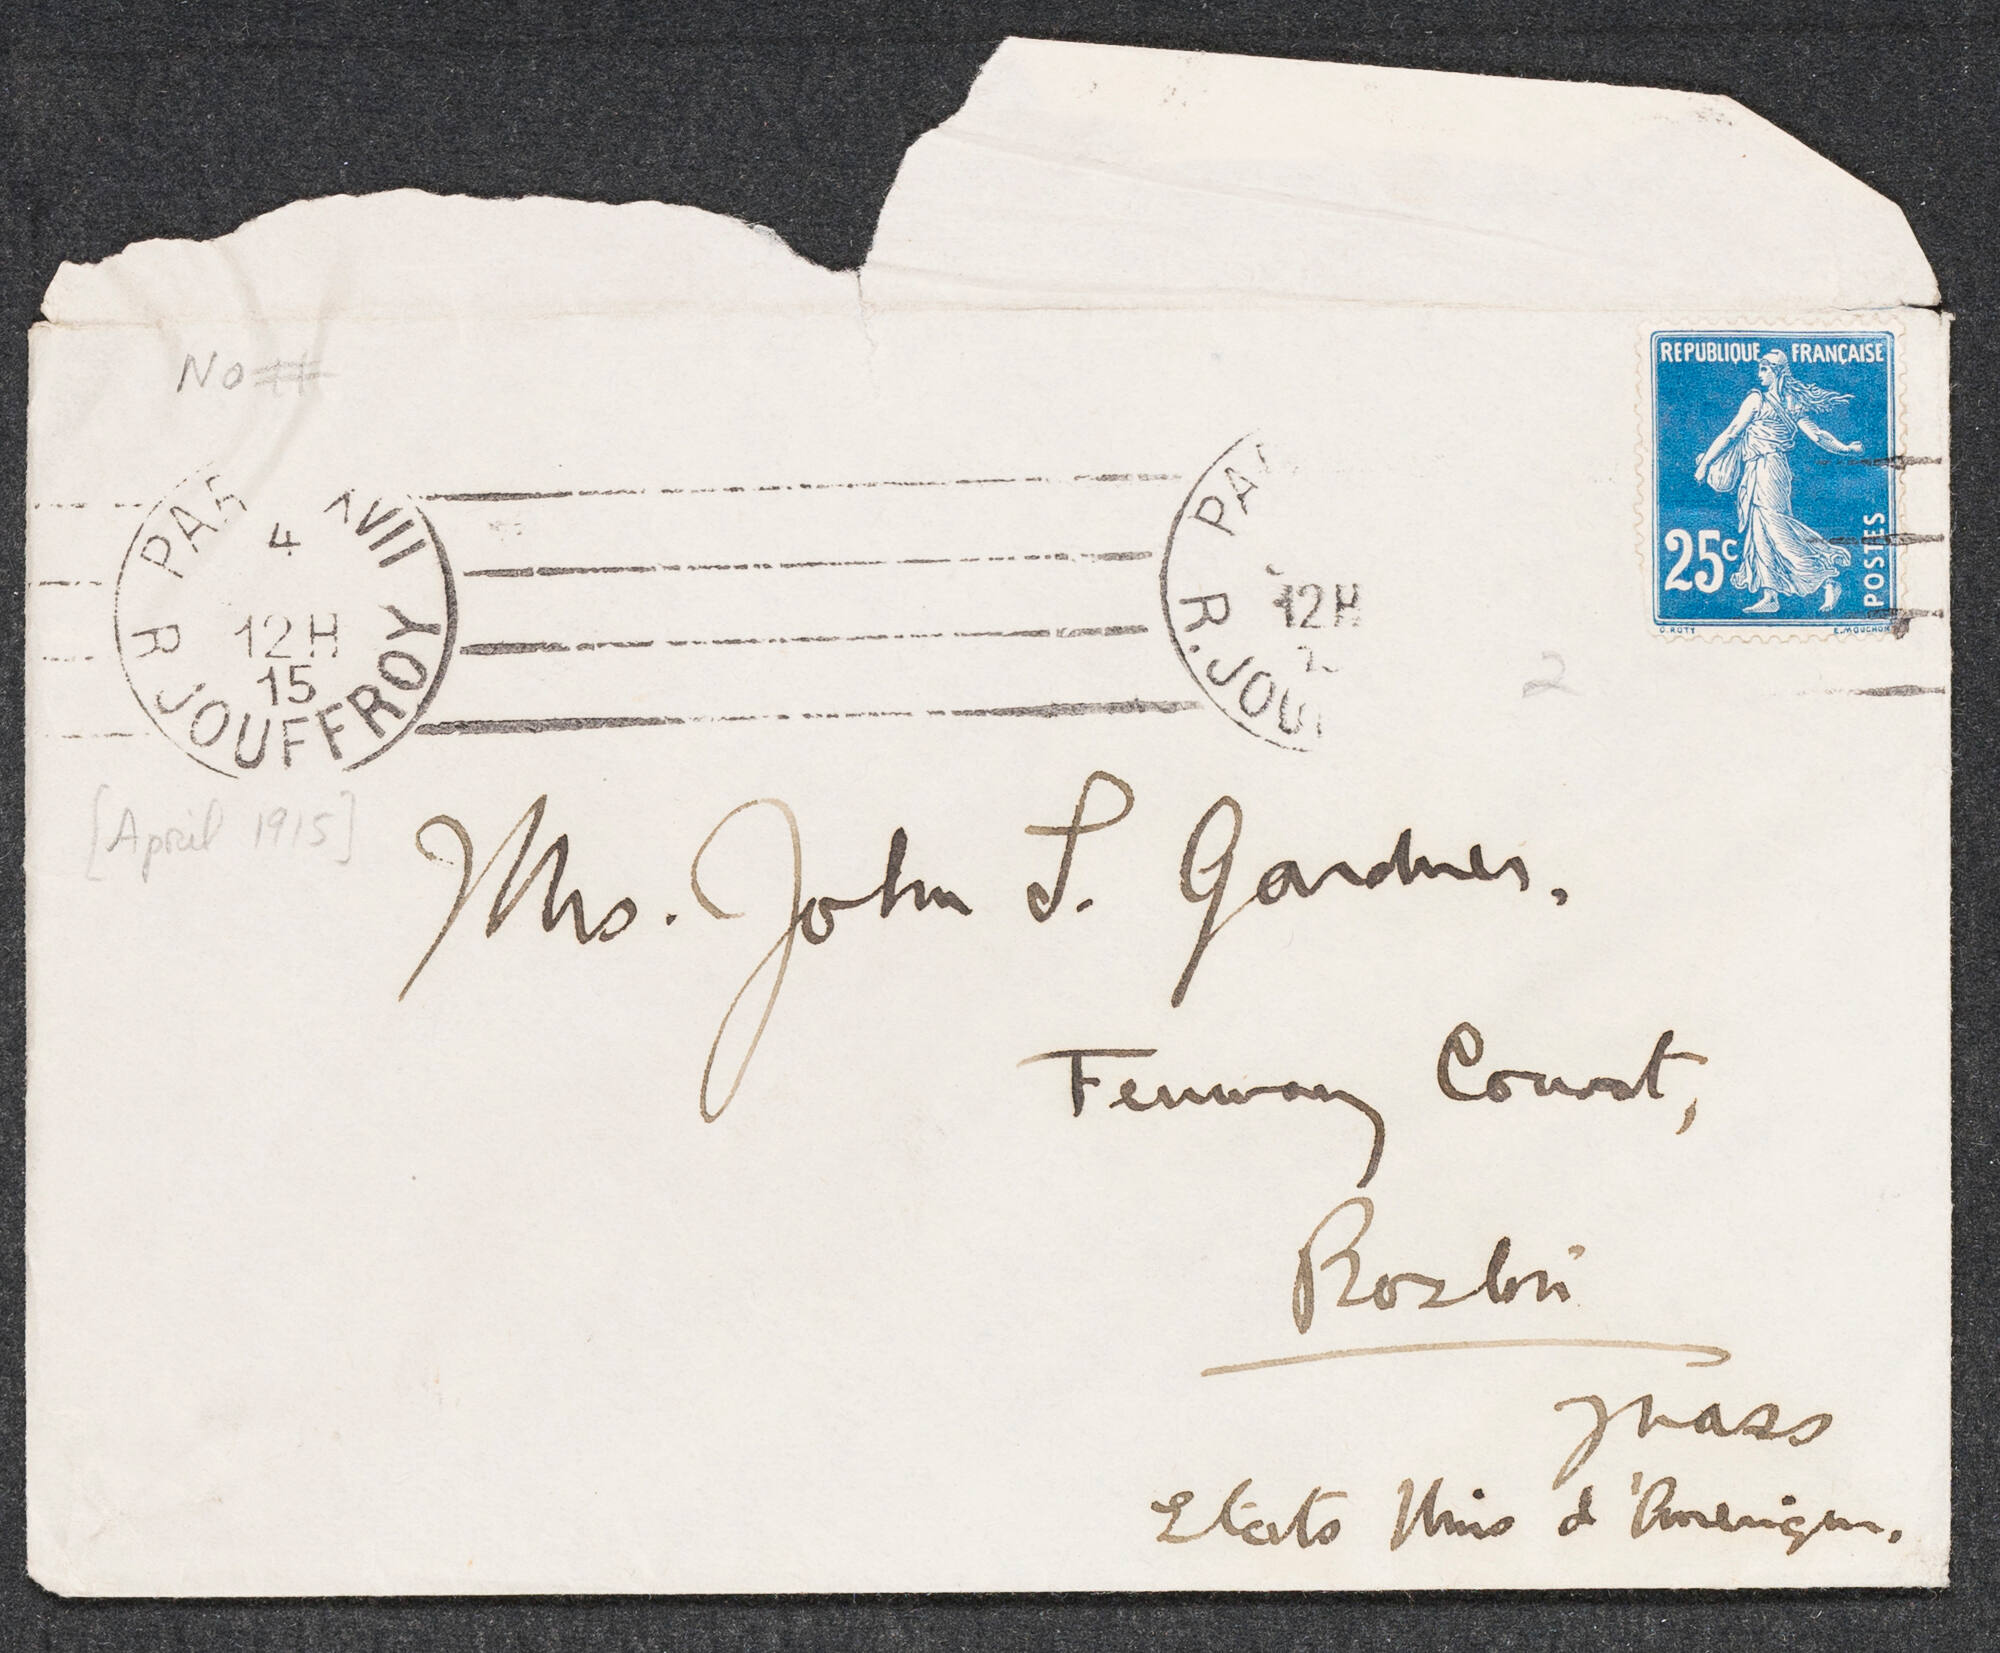 No #
REPUBLIQUE FRANÇAISE
25c
POSTES
O. ROTY E. MOUCHON
PAR XVII
4
12H
15
R. JOUFFROY
PA
12H
R. JOU
2
[April 1915]
Mrs. John L. Gardner,
Fenway Court,
Boston
Mass
Etats Unis d'Amerique.